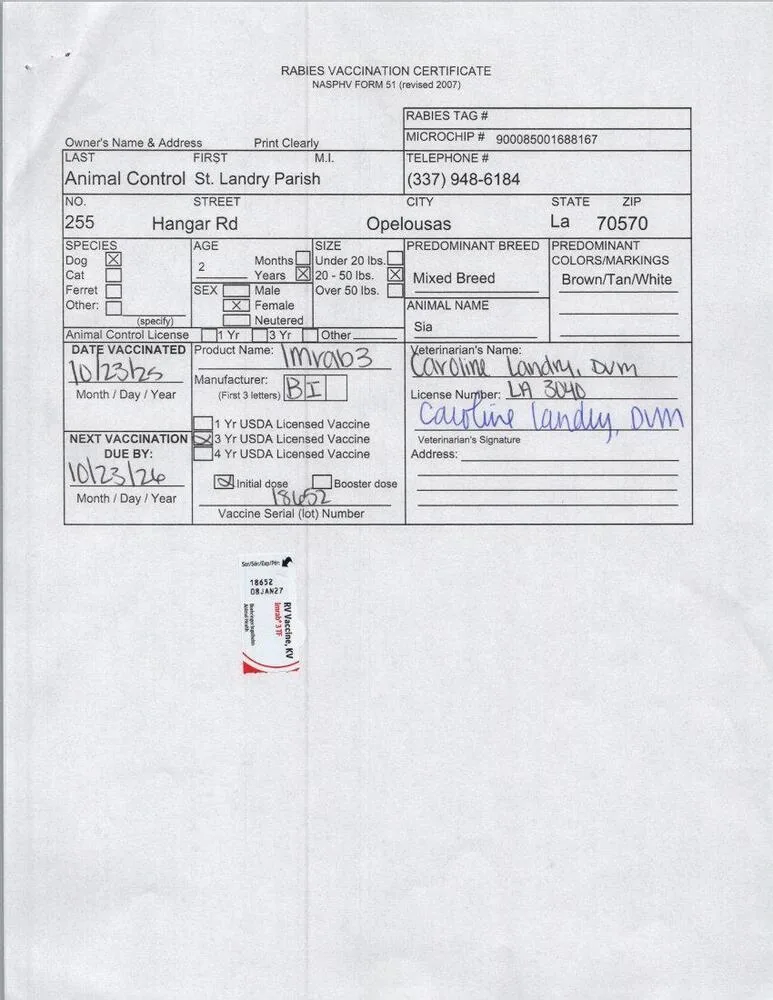 RABIES VACCINATION CERTIFICATE
NASPHV FORM 51 (revised 2007)
RABIES TAG #
MICROCHIP # 900085001688167
Owner's Name & Address Print Clearly
LAST FIRST M.I. TELEPHONE #
Animal Control St. Landry Parish (337) 948-6184
NO. STREET CITY STATE ZIP
255 Hangar Rd Opelousas La 70570
SPECIES AGE SIZE PREDOMINANT BREED PREDOMINANT
Dog X Months Under 20 lbs. COLORS/MARKINGS
Cat 2 Years X 20 - 50 lbs. X Mixed Breed Brown/Tan/White
Ferret SEX Male Over 50 lbs.
Other: X Female ANIMAL NAME
(specify) Neutered Sia
Animal Control License 1 Yr 3 Yr Other
DATE VACCINATED Product Name: Imrab3 Veterinarian's Name:
10/23/25 Caroline Landry, DVM
Month / Day / Year Manufacturer: License Number: LA 3040
(First 3 letters) BI
1 Yr USDA Licensed Vaccine Caroline Landry, DVM
NEXT VACCINATION 3 Yr USDA Licensed Vaccine Veterinarian's Signature
DUE BY: 4 Yr USDA Licensed Vaccine Address:
10/23/26
Initial dose Booster dose
Month / Day / Year 18652
Vaccine Serial (lot) Number
18652
08JAN27
RV Vaccine, KV
Imrab® 3 TF
Boehringer Ingelheim
Animal Health